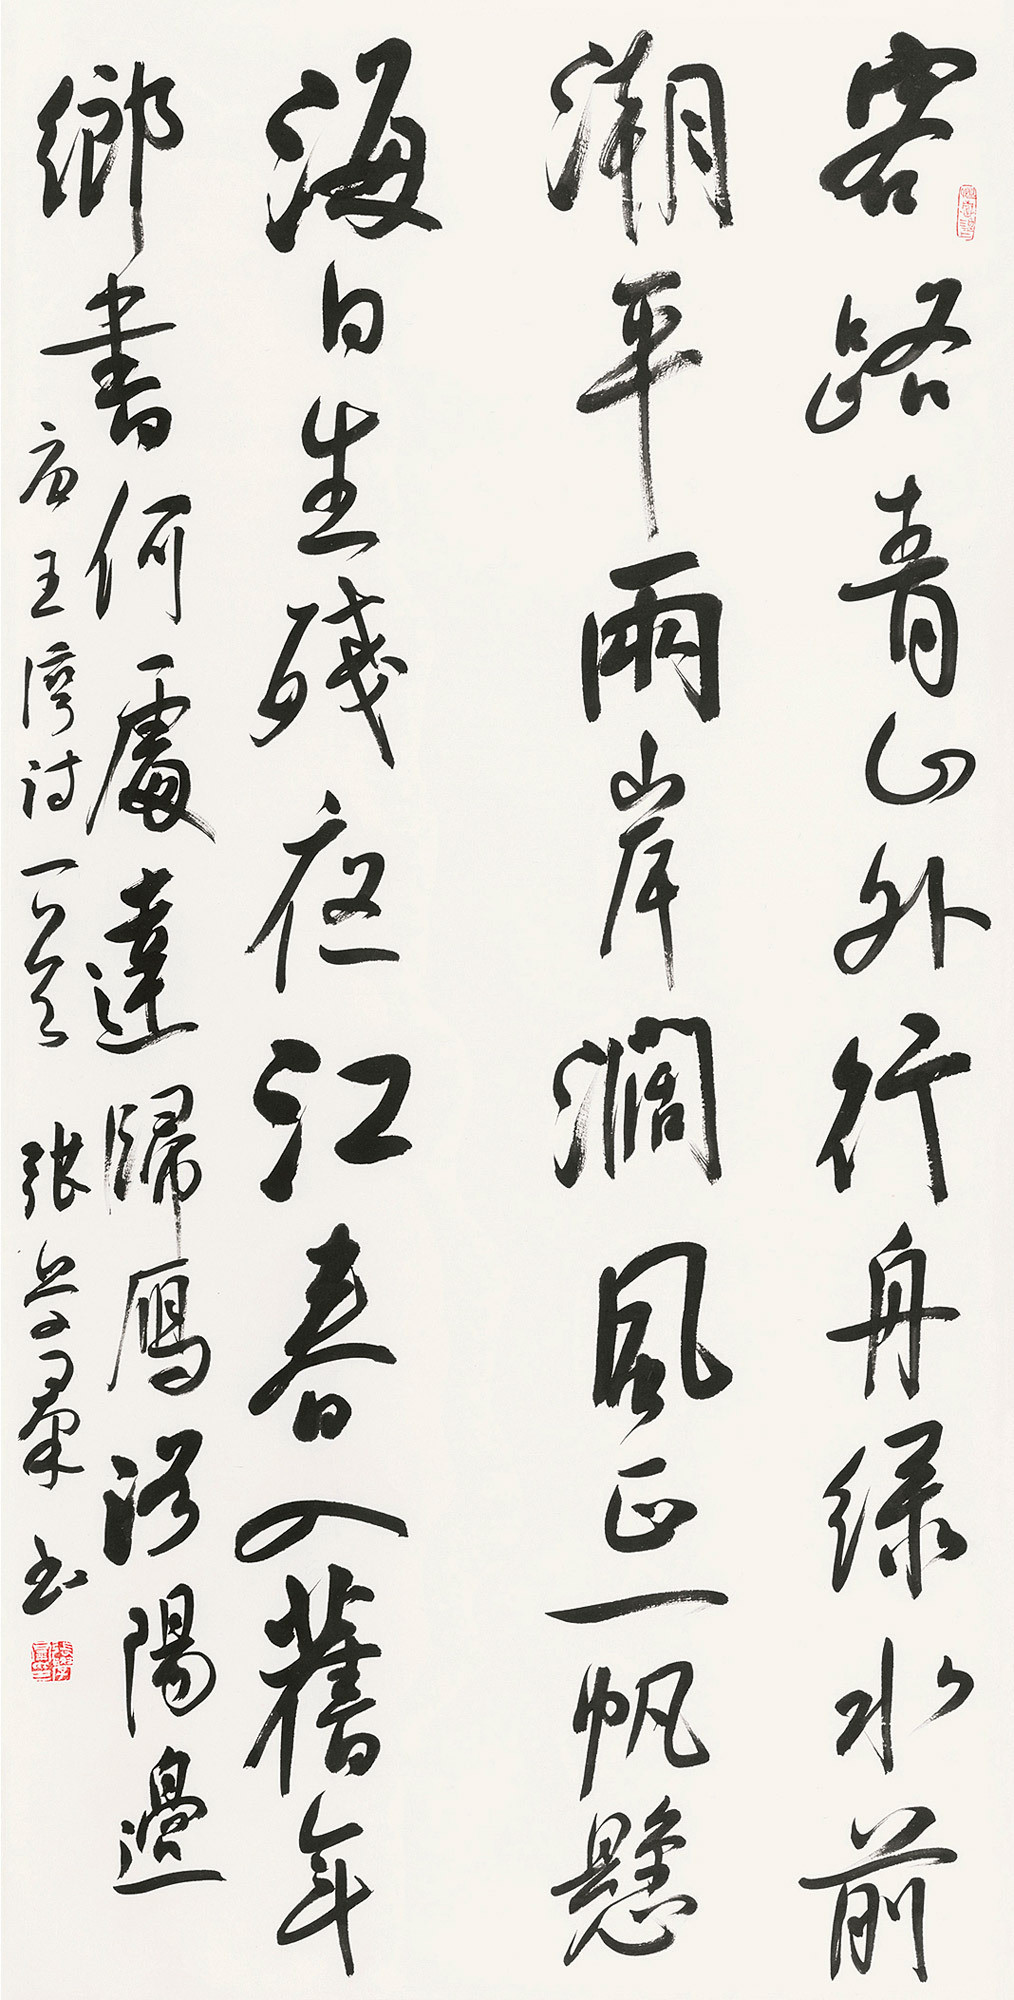 客路青山外行舟绿水前
潮平兩岸濶風正一帆懸
海日生残夜江春入舊年
鄉書何處達歸鴈洛陽邊
唐王湾诗一首 張 书